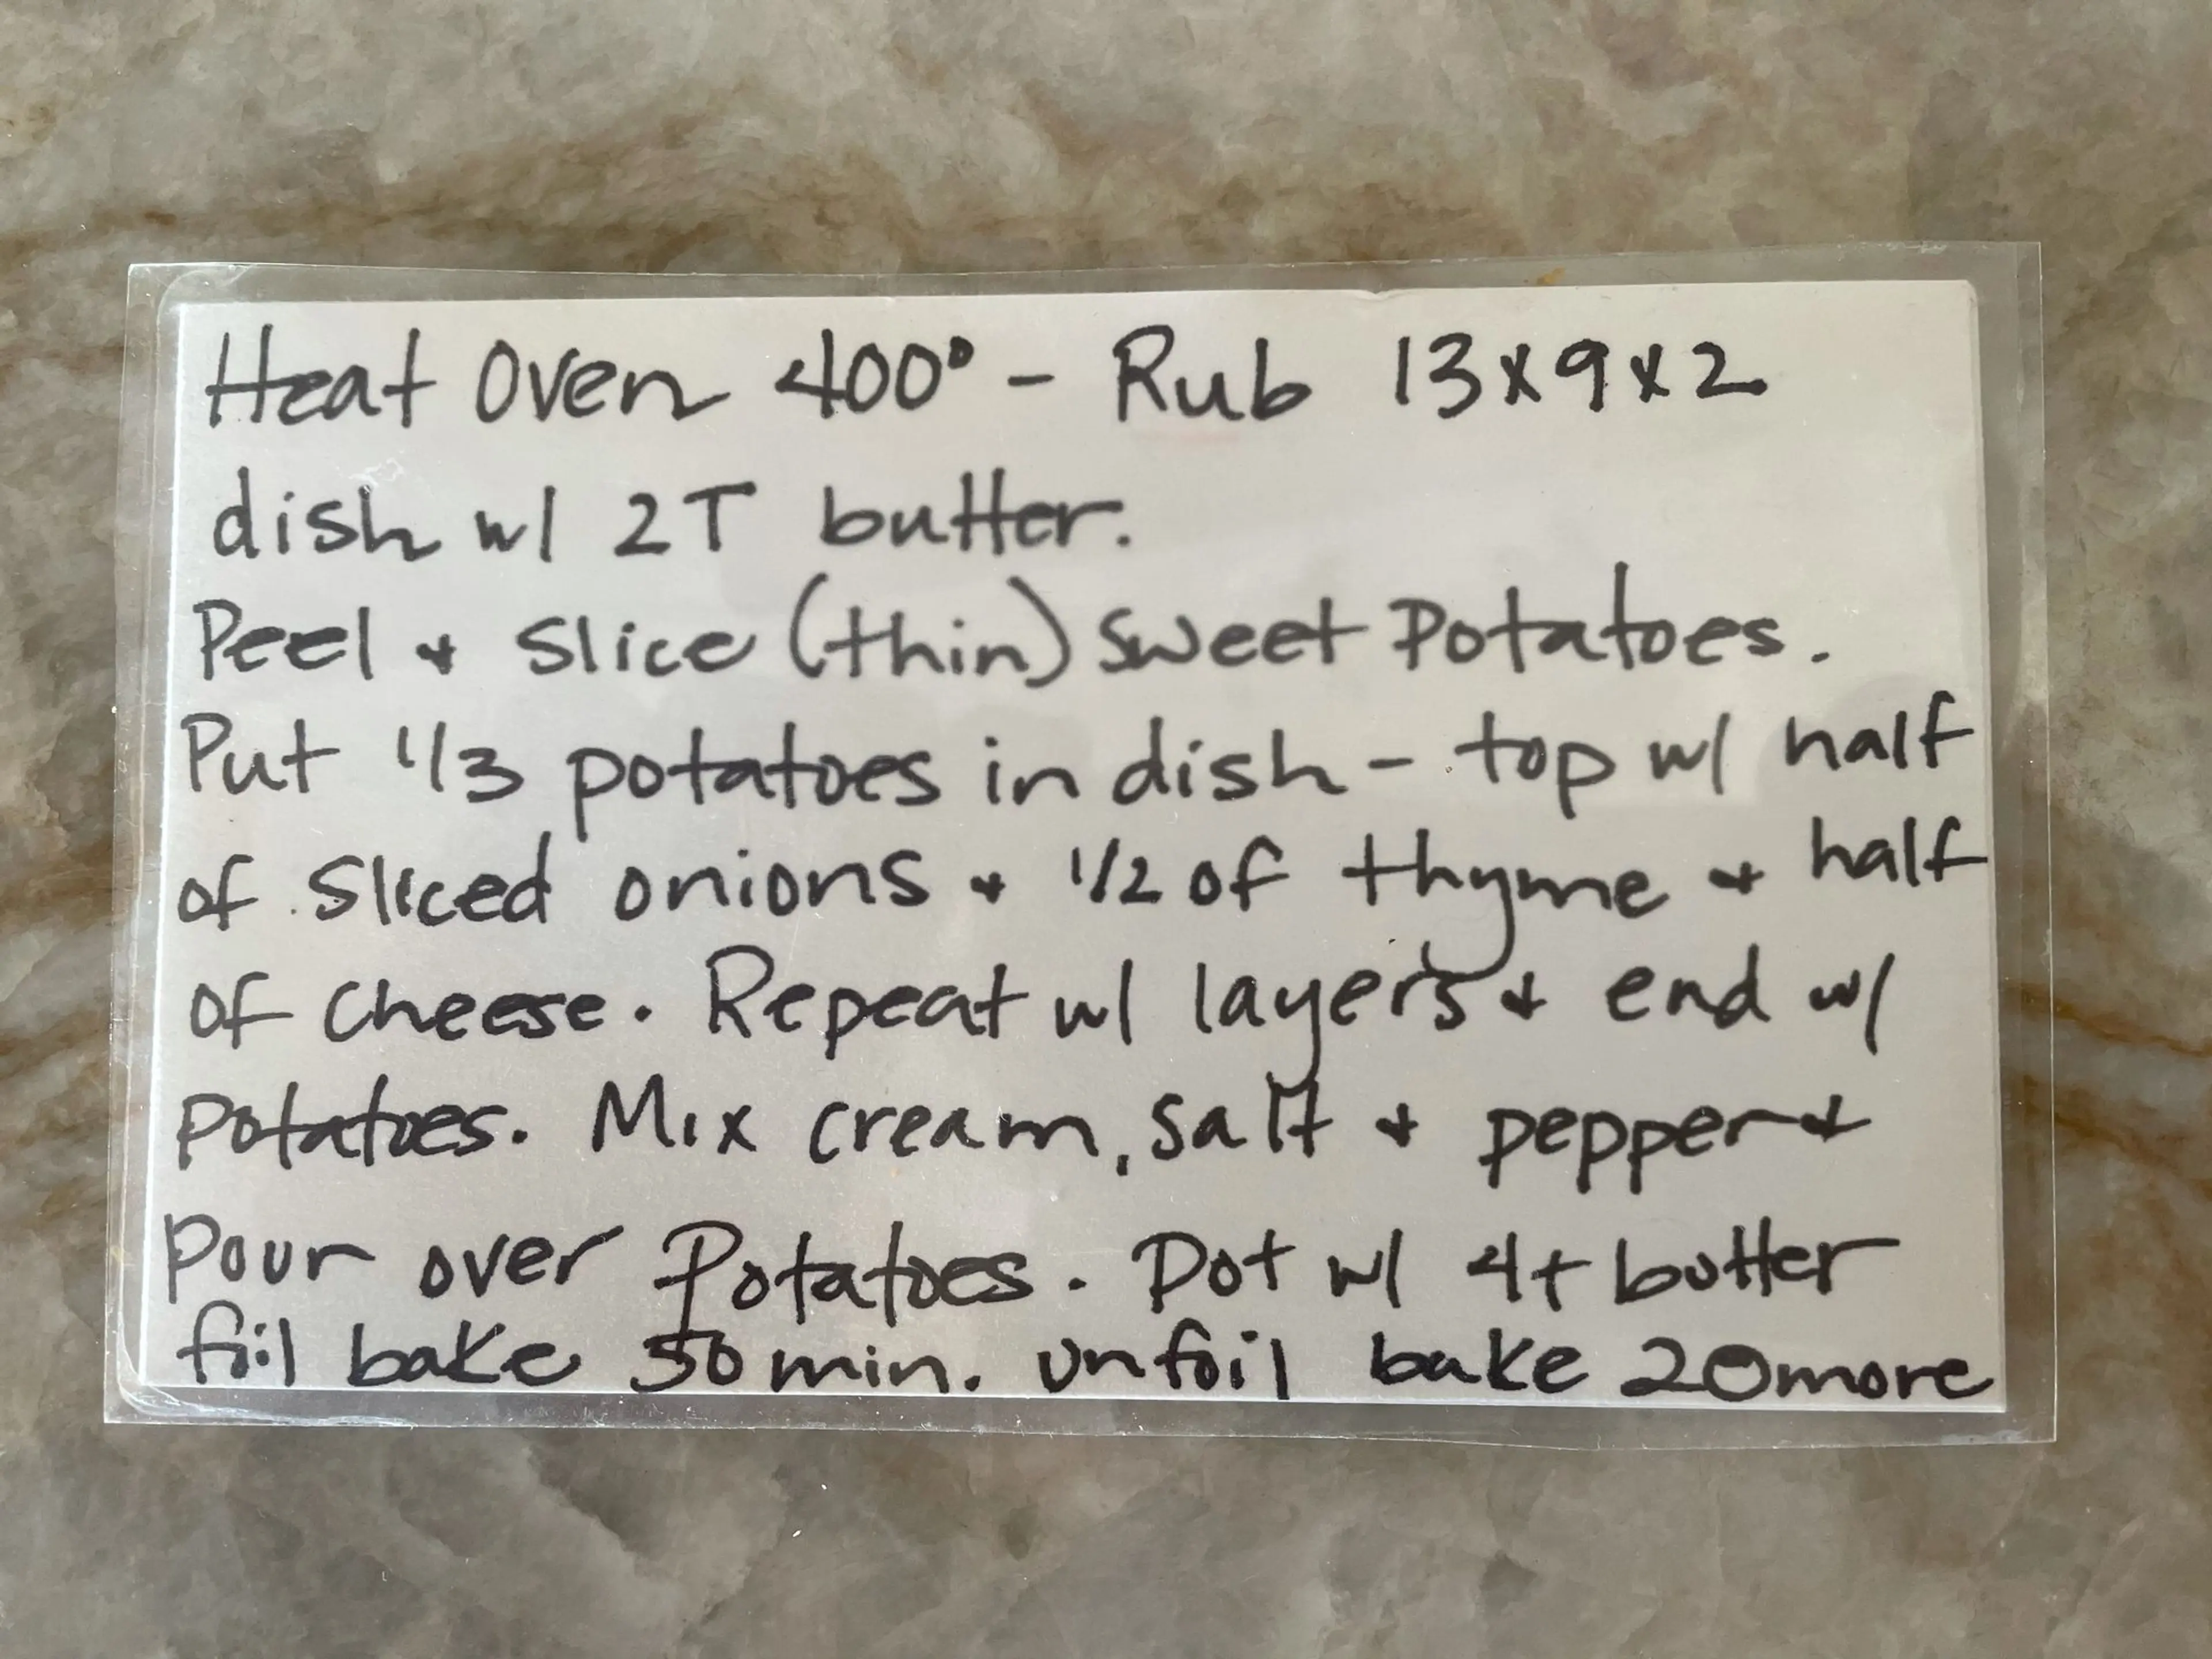 Heat Oven 400° - Rub 13x9x2
dish w/ 2T butter.
Peel + Slice (thin) Sweet Potatoes.
Put 1/3 potatoes in dish - top w/ half
of sliced onions + 1/2 of thyme + half
of cheese. Repeat w/ layers + end w/
potatoes. Mix cream, salt + pepper +
pour over Potatoes. Dot w/ 4t butter
foil bake 50 min. unfoil bake 20 more